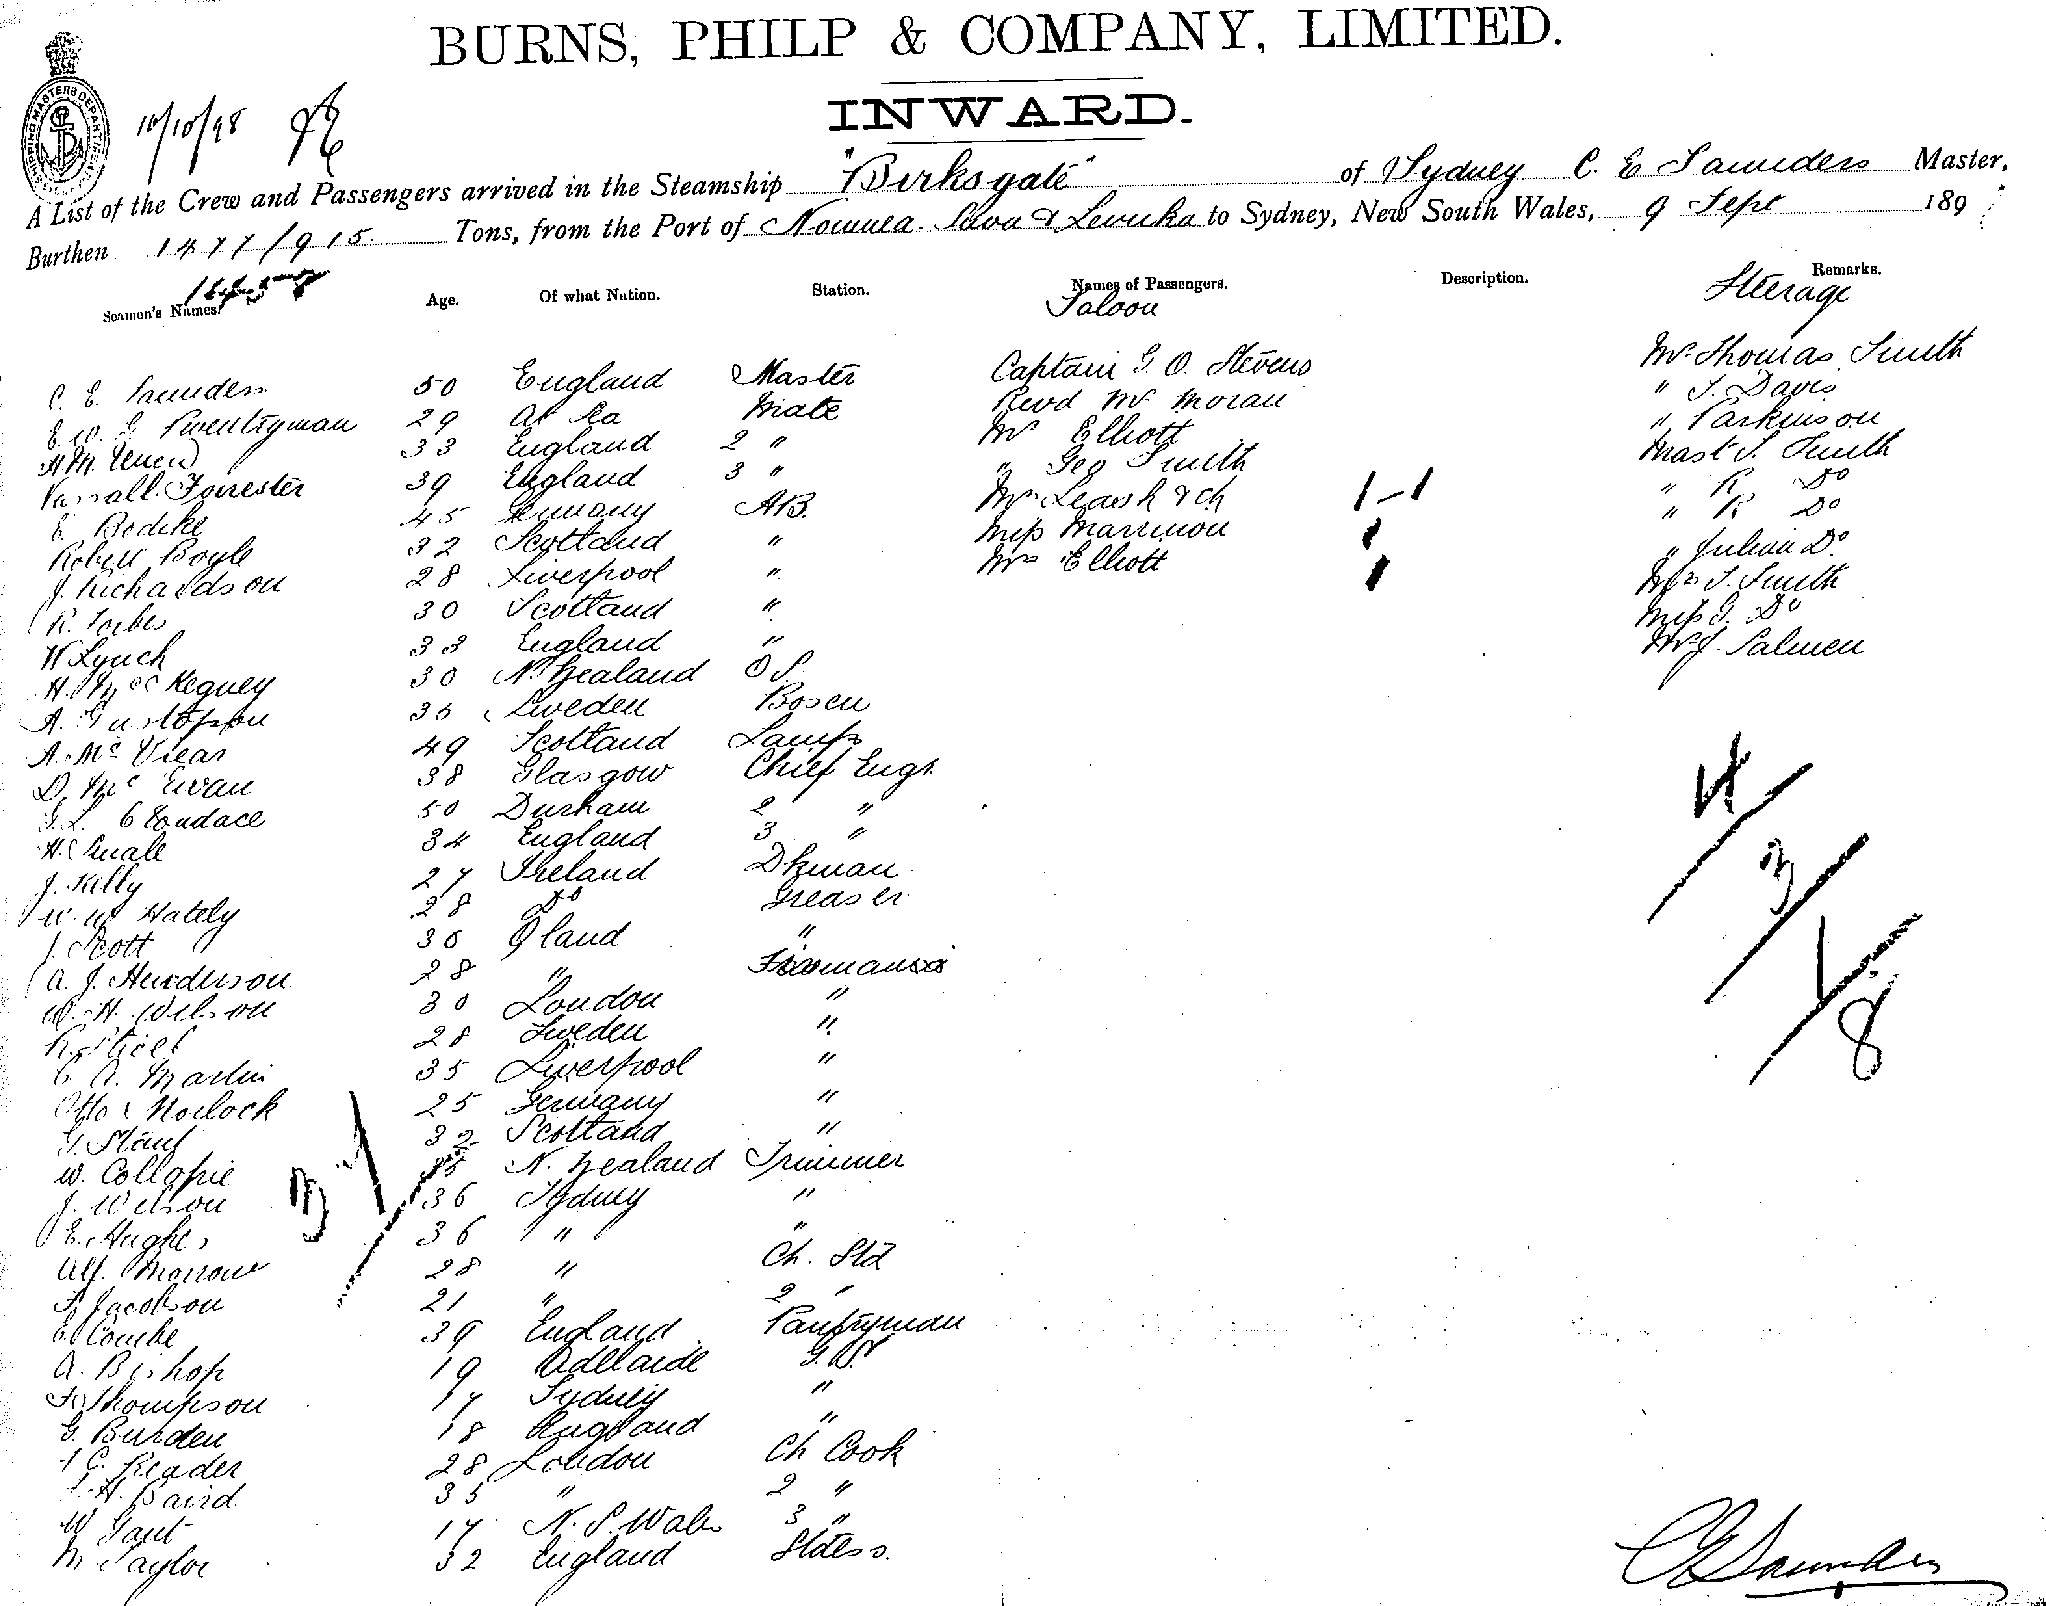 BURNS, PHILP & COMPANY, LIMITED.
INWARD.
SHIPPING MASTERS DEPARTMENT
10/10/98
A List of the Crew and Passengers arrived in the Steamship "Birksgate" of Sydney C. E Saunders Master,
Burthen 1477/915 Tons, from the Port of Noumea. Suva & Levuka to Sydney, New South Wales, 9 Sept 189
Seamen's Names. Age. Of what Nation. Station. Names of Passengers. Description. Remarks.
Saloon Steerage
C. E. Saunders 50 England Master Captain G. O. Stevens Mr Thomas Smith
E. W. G Twentyman 29 At Sea Mate Revd Mr Moran " T. Davis
H. M. 33 England 2 " Mr Elliott " Parkinson
Vassall Forrester 39 England 3 " " Geo Smith Mast S. Smith
E. Bedeke 45 Germany AB. Mrs Leash & ch 1-1 " R Do
Robert Boyle 32 Scotland " Miss Marrinon 1 " R Do
J. Richardson 28 Liverpool " Mrs Elliott 1 " Julian Do
R. Forbes 30 Scotland " Mrs T. Smith
W Lynch 33 England " Miss G. Do
H. McKegney 30 N. Zealand O S. Mr J. Salmen
A. Gustafson 35 Sweden Bosen
A. McVicar 49 Scotland Lamps
D. McEwan 38 Glasgow Chief Engr.
G. L. Condace 50 Durham 2 "
H. Quale 34 England 3 "
J. Kelly 27 Ireland Dkman
W. Hately 28 Do Greaser
J. Scott 30 Oland "
A. J. Henderson 28 " Firemans
W. H. Wilson 30 London "
R. 28 Sweden "
C. A. Martin 35 Liverpool "
Otto Morlock 25 Germany "
G. 32 Scotland "
W. 35 N. Zealand Trimmer
J. Wilson 36 Sydney "
E. Hughes 36 " "
Alf. Morrow 28 " Ch. Std
F. Jacobson 21 " 2 "
E. Combe 39 England Pantryman
A. Bishop 19 Adelaide G. S.
F. Thompson 17 Sydney "
G. Burden 18 England "
C. Reader 28 London Ch Cook
H. Baird 35 " 2 "
W Gant 17 N. S. Wales 3 "
M Taylor 32 England Stdess.
4/3/1/8
C E Saunders